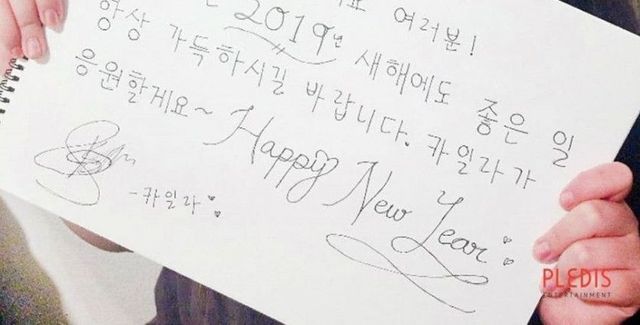 여러분!
2019년 새해에도 좋은 일
항상 가득하시길 바랍니다. 카일라가
응원할게요~ Happy New Year
-카일라
PLEDIS
ENTERTAINMENT